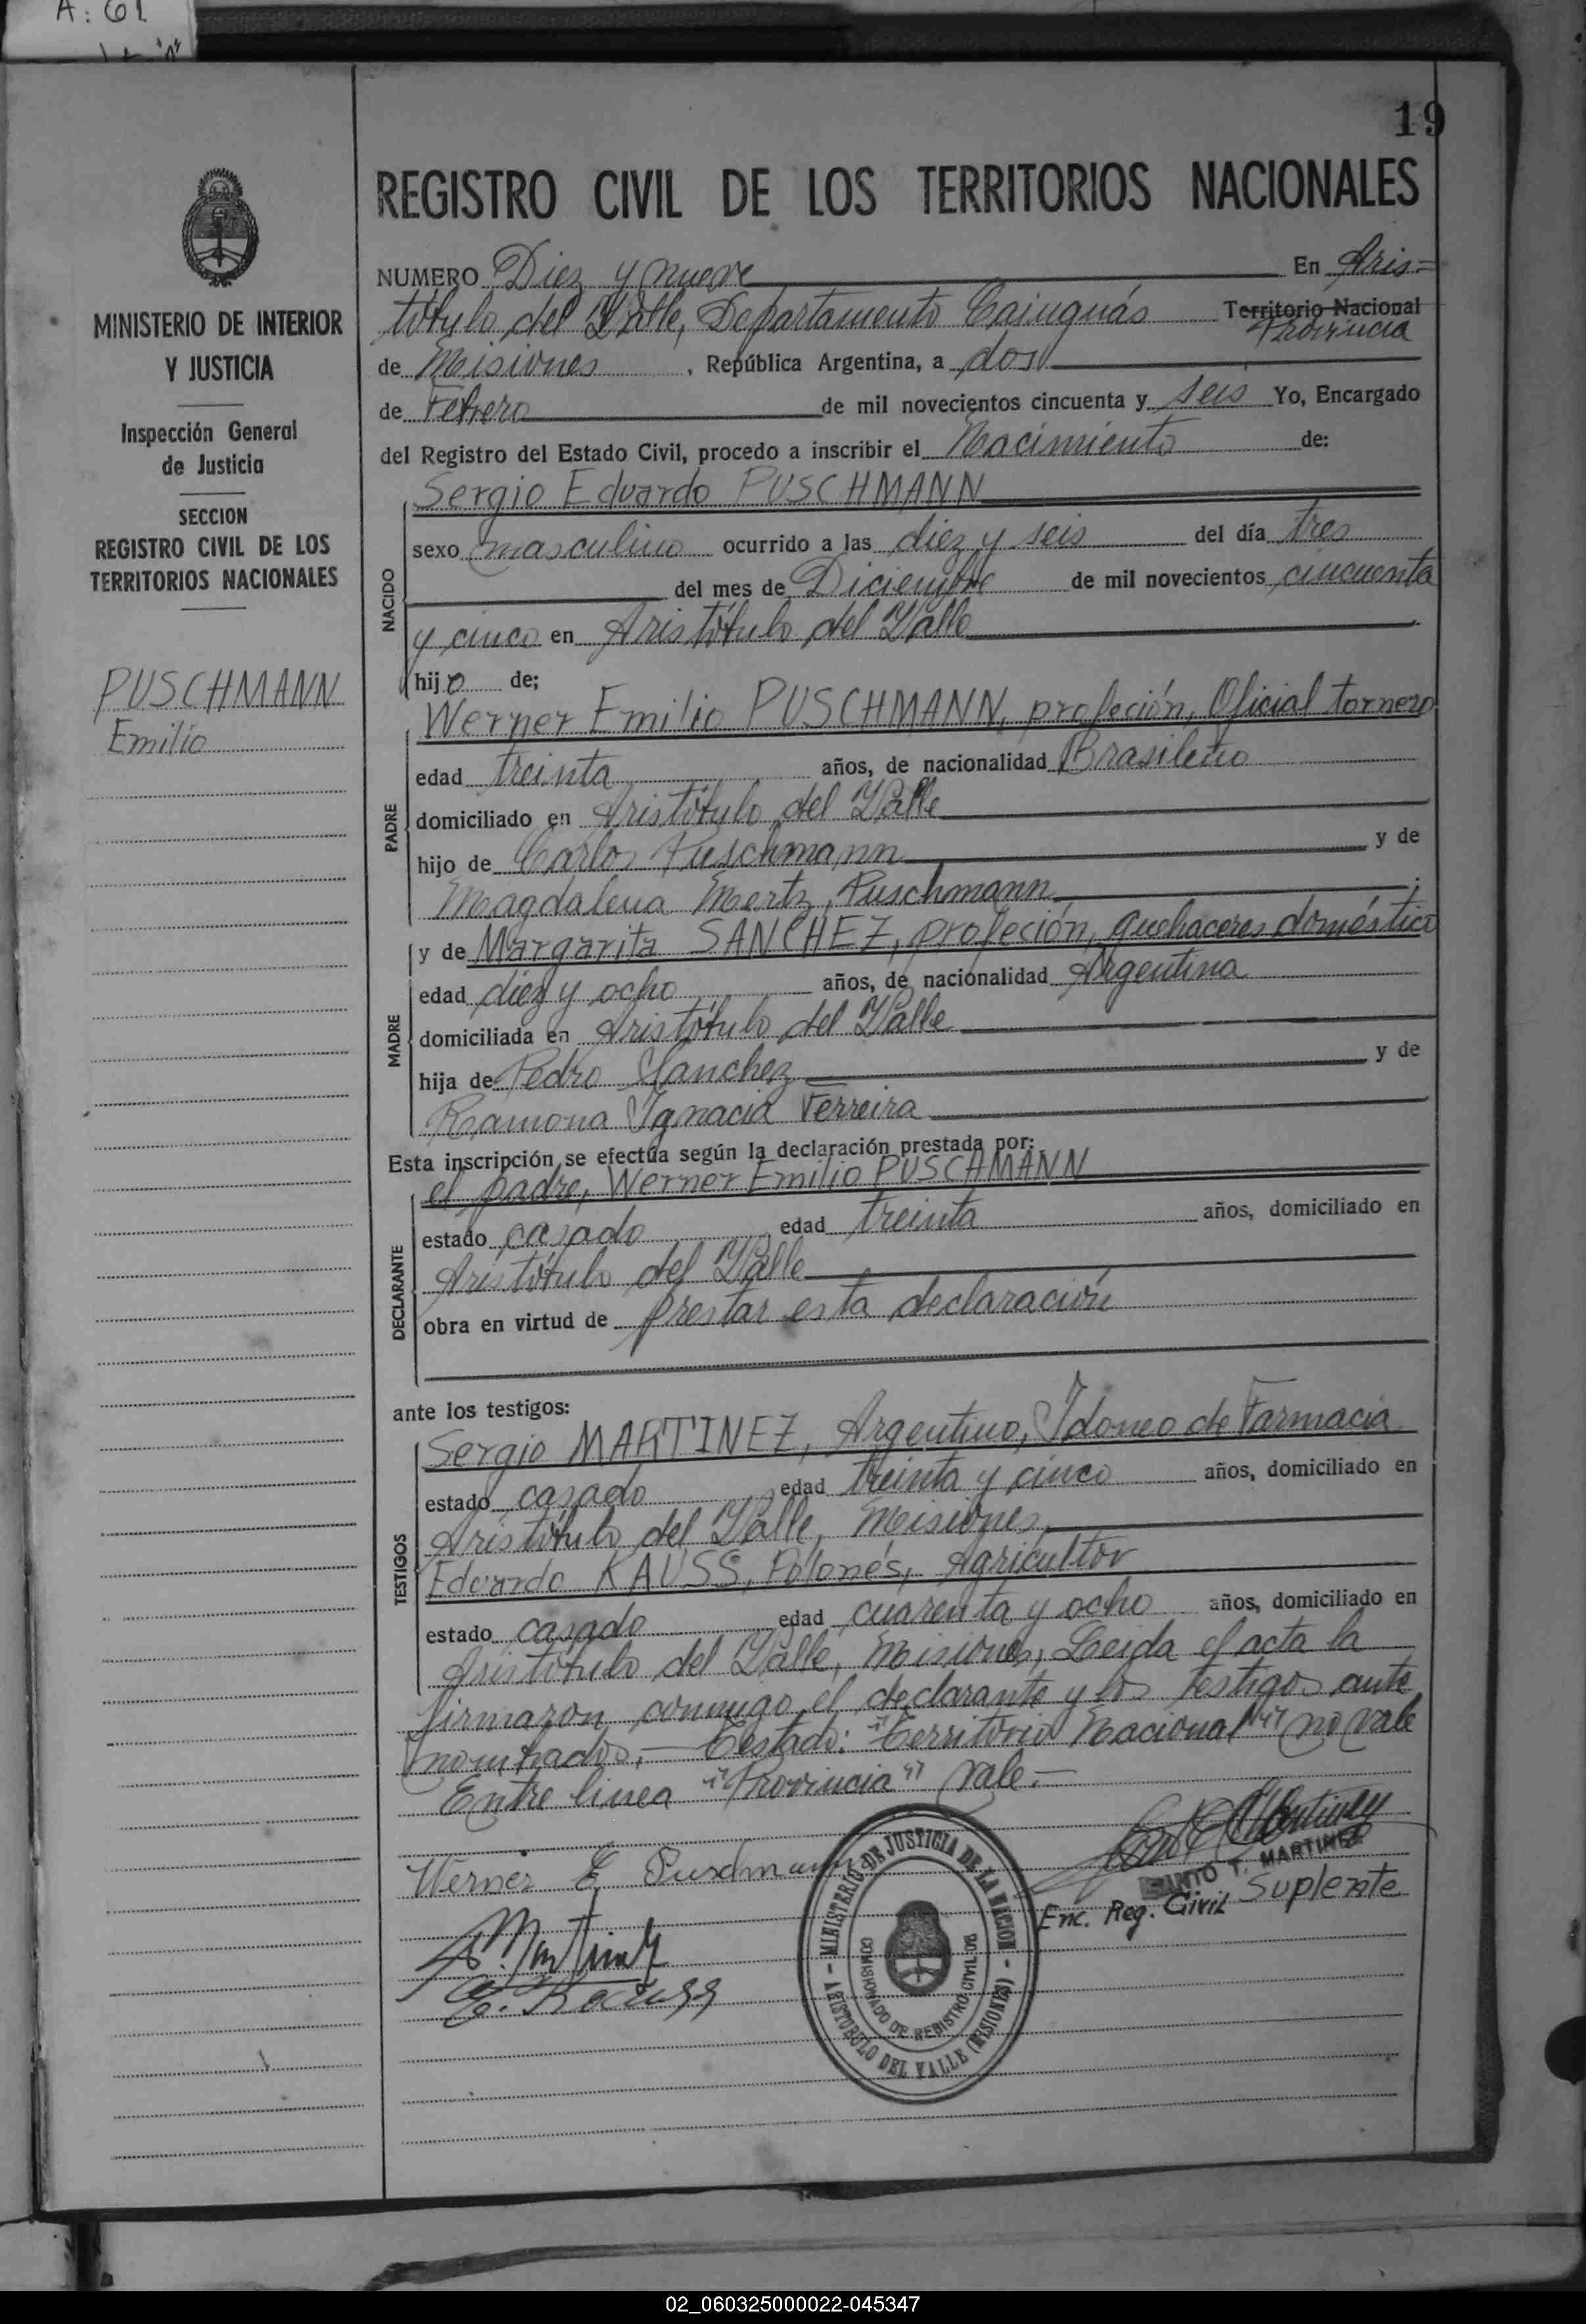 A: 61
19
REGISTRO CIVIL DE LOS TERRITORIOS NACIONALES
MINISTERIO DE INTERIOR
Y JUSTICIA
Inspección General
de Justicia
SECCION
REGISTRO CIVIL DE LOS
TERRITORIOS NACIONALES
PUSCHMANN
Emilio
NUMERO Diez y nueve En Aris=
tóbulo del Valle, Departamento Cainguás Territorio Nacional
Provincia
de Misiones, República Argentina, a dos
de Febrero de mil novecientos cincuenta y seis Yo, Encargado
del Registro del Estado Civil, procedo a inscribir el Nacimiento de:
NACIDO
Sergio Eduardo PUSCHMANN
sexo masculino ocurrido a las diez y seis del día tres
del mes de Diciembre de mil novecientos cincuenta
y cinco en Aristóbulo del Valle
hijo de;
PADRE
Werner Emilio PUSCHMANN, profeción, Oficial tornero
edad treinta años, de nacionalidad Brasileño
domiciliado en Aristóbulo del Valle
hijo de Carlos Puschmann y de
Magdalena Mertz, Puschmann;
MADRE
y de Margarita SANCHEZ, profeción, quehaceres doméstico
edad diez y ocho años, de nacionalidad Argentina
domiciliada en Aristóbulo del Valle
hija de Pedro Sanchez y de
Ramona Ignacia Ferreira
Esta inscripción se efectúa según la declaración prestada por:
DECLARANTE
el padre, Werner Emilio PUSCHMANN
estado casado edad treinta años, domiciliado en
Aristóbulo del Valle
obra en virtud de prestar esta declaración
ante los testigos:
TESTIGOS
Sergio MARTINEZ, Argentino, Idoneo de Farmacia
estado casado edad treinta y cinco años, domiciliado en
Aristóbulo del Valle, Misiones
Eduardo KAUSS, Polonés, Agricultor
estado casado edad cuarenta y ocho años, domiciliado en
Aristóbulo del Valle, Misiones, Leida el acta la
firmaron conmigo el declarante y los testigos ante
nombrados.- Testado: "Territorio Nacional" no vale
Entre linea "Provincia" vale.-
Werner E. Puschmann
S. Martinez
E. Kauss
MINISTERIO DE JUSTICIA DE LA NACION
COMISIONADO DE REGISTRO CIVIL DE
ARISTOBULO DEL VALLE (MISIONES)
SANTO T. MARTINEZ
Enc. Reg. Civil Suplente
02_060325000022-045347